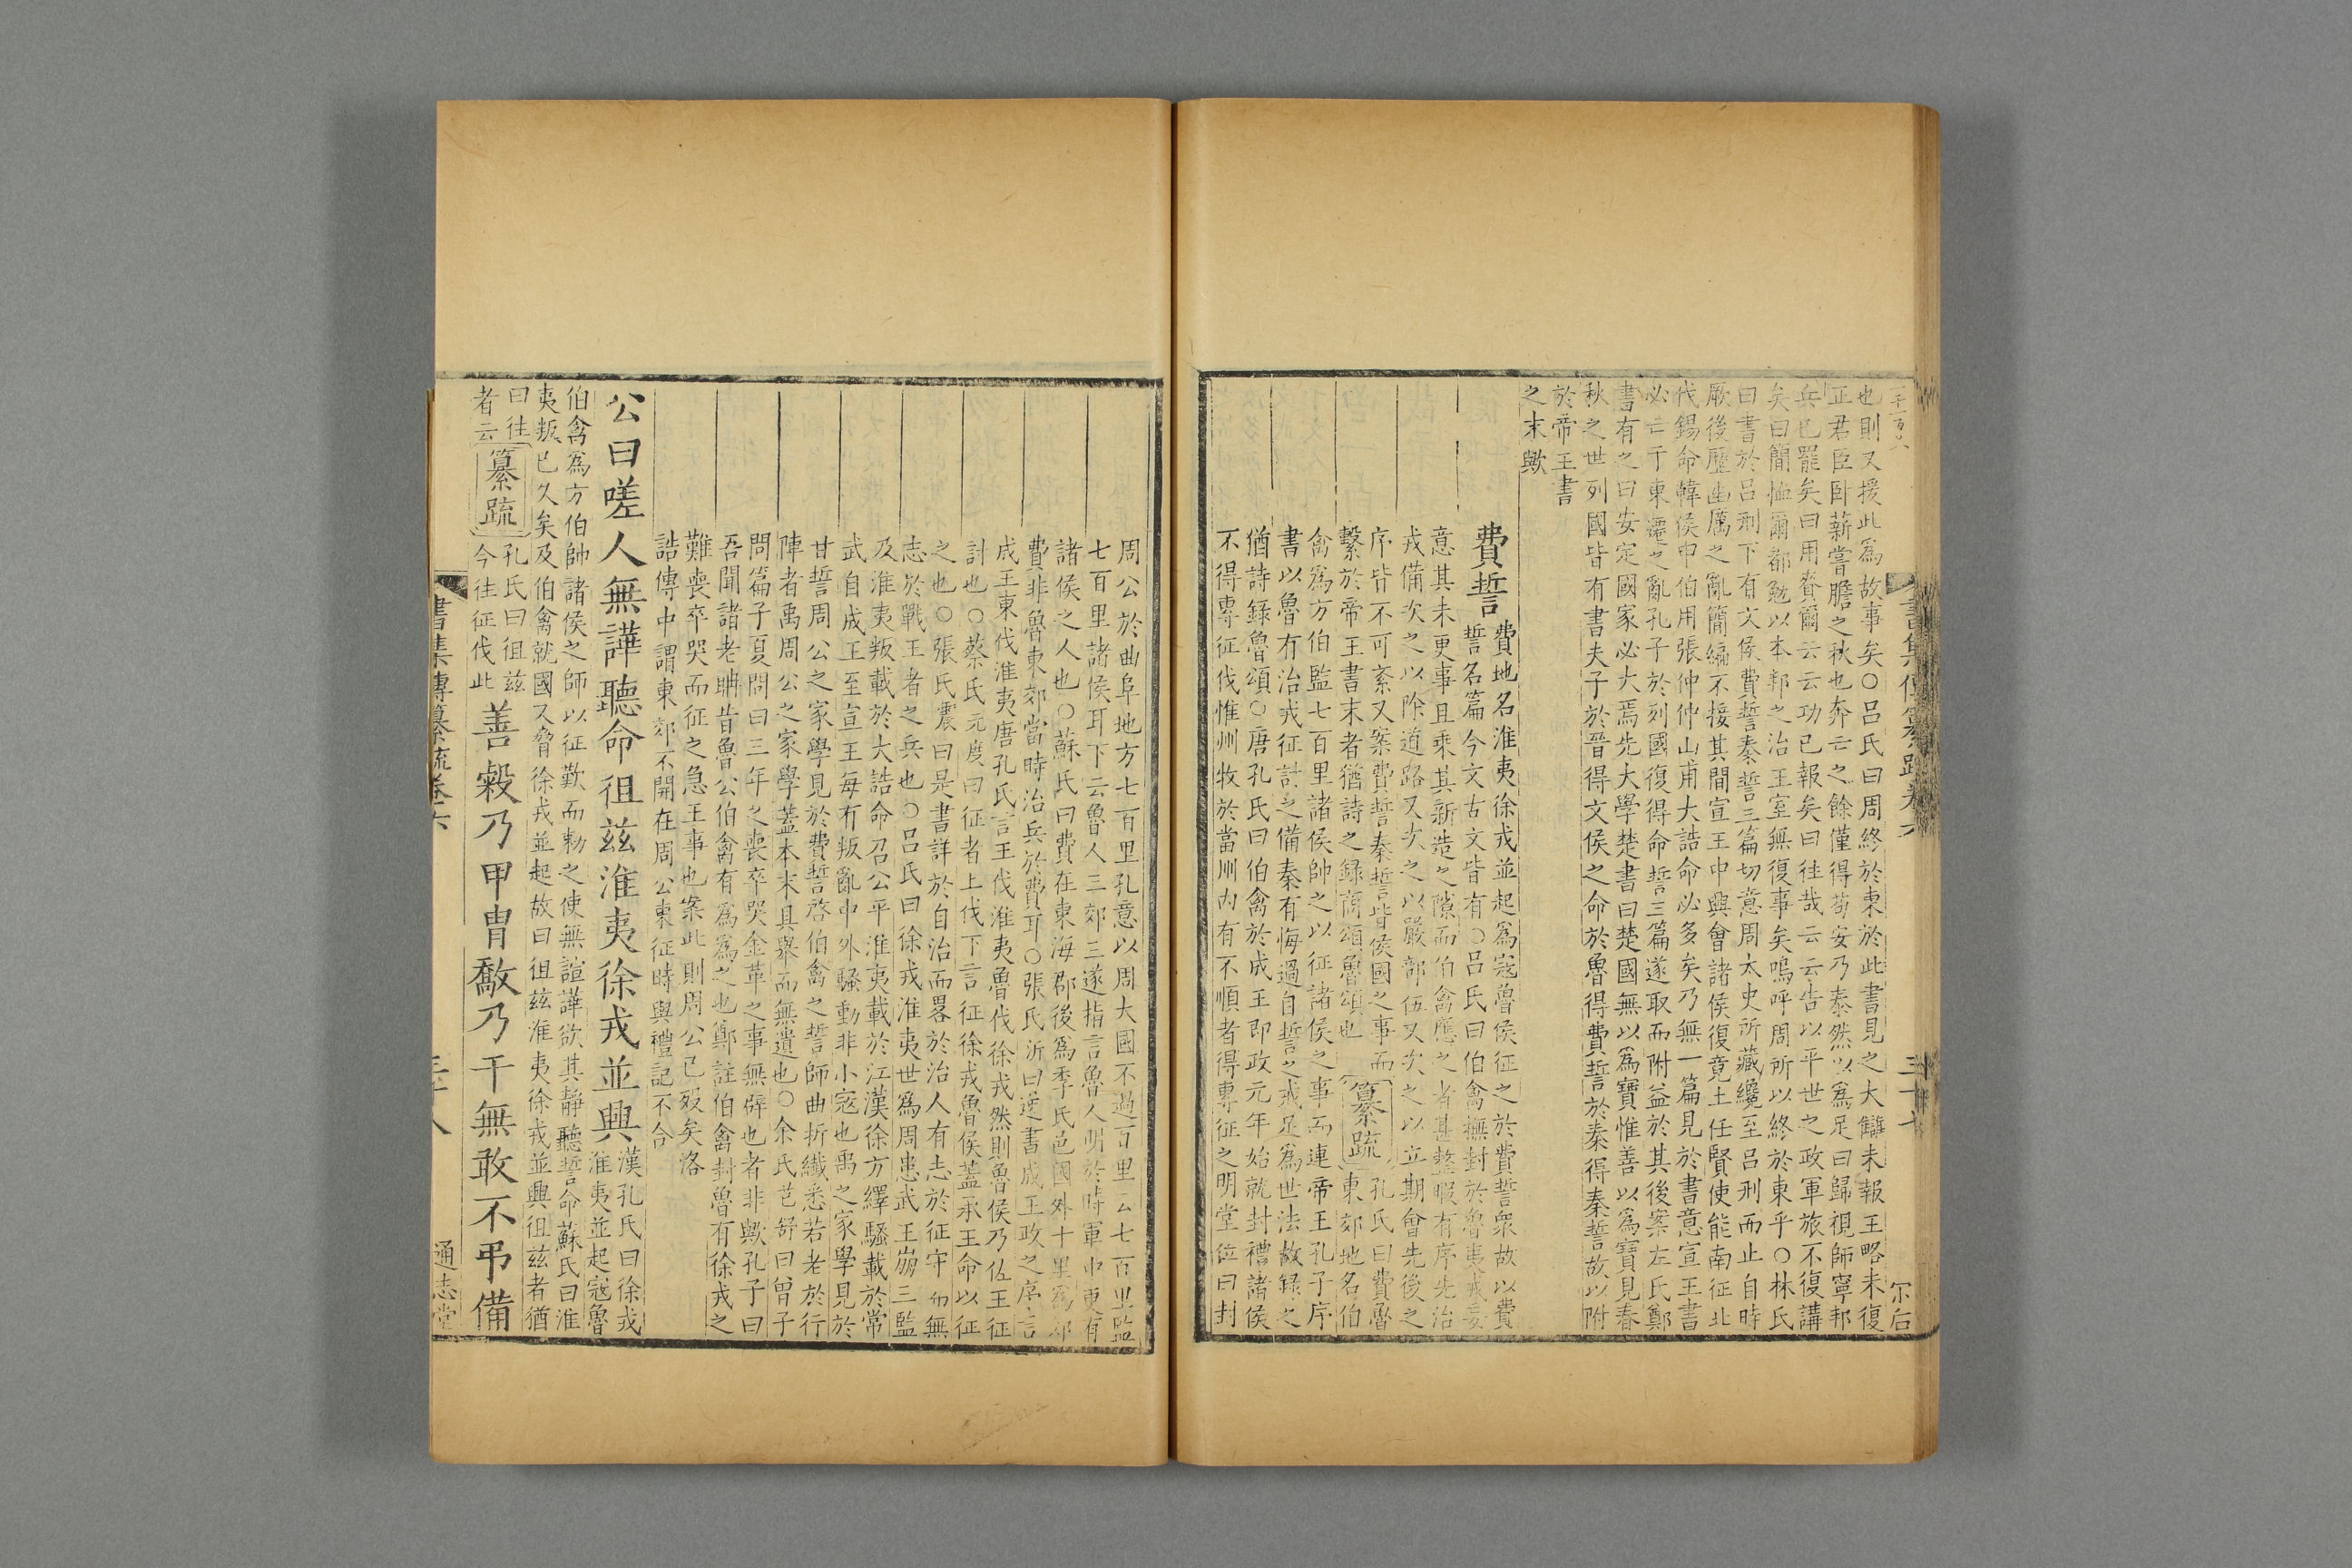 也則又援此爲故事矣○呂氏曰周終於東於此書見之大讎未報王略未復
正君臣卧薪嘗膽之秋也奔亡之餘僅得苟安乃泰然以爲足曰歸視師寧邦
兵已罷矣曰用賚爾云云功已報矣曰往哉云云告以平世之政軍旅不復講
矣曰簡恤爾都勉以本邦之治王室無復事矣嗚呼周所以終於東乎○林氏
曰書於呂刑下有文侯費誓秦誓三篇切意周太史所藏纔至呂刑而止自時
厥後歷幽厲之亂簡編不接其間宣王中興會諸侯復竟土任賢使能南征北
伐錫命韓侯申伯用張仲仲山甫大誥命必多矣乃無一篇見於書意宣王書
必亡于東遷之亂孔子於列國復得命誓三篇遂取而附益於其後案左氏鄭
書有之曰安定國家必大焉先大學楚書曰楚國無以爲寶惟善以爲寶見春
秋之世列國皆有書夫子於晉得文侯之命於魯得費誓於秦得秦誓故以附
於帝王書
之末歟
費誓
費地名淮夷徐戎並起爲寇魯侯征之於費誓衆故以費
誓名篇今文古文皆有○呂氏曰伯禽撫封於魯夷戎妄
意其未更事且乘其新造之隙而伯禽應之者甚整暇有序先治
戎備次之以除道路又次之以嚴部伍又次之以立期會先後之
序皆不可紊又案費誓秦誓皆侯國之事而
繫於帝王書末者猶詩之録商頌魯頌也
纂疏
孔氏曰費魯
東郊地名伯
禽爲方伯監七百里諸侯帥之以征諸侯之事而連帝王孔子序
書以魯有治戎征討之備秦有悔過自誓之戒足爲世法故録之
猶詩録魯頌○唐孔氏曰伯禽於成王即政元年始就封禮諸侯
不得專征伐惟州牧於當州内有不順者得專征之明堂位曰封
書集傳纂疏卷六
三十七
周公於曲阜地方七百里孔意以周大國不過百里云七百里監
七百里諸侯耳下云魯人三郊三遂指言魯人明於時軍中更有
諸侯之人也○蘇氏曰費在東海郡後爲季氏邑國外十里爲郊
費非魯東郊當時治兵於費耳○張氏沂曰逆書成王政之序言
成王東伐淮夷唐孔氏言王伐淮夷魯伐徐戎然則魯侯乃佐王征
討也○蔡氏元度曰征者上伐下言征徐戎魯侯蓋承王命以征
之也○張氏震曰是書詳於自治而畧於治人有志於征守而無
志於戰王者之兵也○呂氏曰徐戎淮夷世爲周患武王崩三監
及淮夷叛載於大誥命召公平淮夷載於江漢徐方繹騷載於常
武自成王至宣王每有叛亂中外騷動非小寇也禹之家學見於
甘誓周公之家學見於費誓啓伯禽之誓師曲折纖悉若老於行
陣者禹周公之家學蓋本末具舉而無遺也○余氏芑舒曰曾子
問篇子夏問曰三年之喪卒哭金革之事無辟也者非歟孔子曰
吾聞諸老聃昔魯公伯禽有爲爲之也鄭註伯禽封魯有徐戎之
難喪卒哭而征之急王事也案此則周公已殁矣洛
誥傳中謂東郊不開在周公東征時與禮記不合
公曰嗟人無譁聽命徂茲淮夷徐戎並興
漢孔氏曰徐戎
淮夷並起寇魯
伯禽爲方伯帥諸侯之師以征歎而勑之使無諠譁欲其靜聽誓命蘇氏曰淮
夷叛已久矣及伯禽就國又脅徐戎並起故曰徂茲淮夷徐戎並興徂茲者猶
曰往
者云
纂疏
孔氏曰徂茲
今往征伐此
善敹乃甲冑敿乃干無敢不弔備
書集傳纂疏卷六
三十八
通志堂